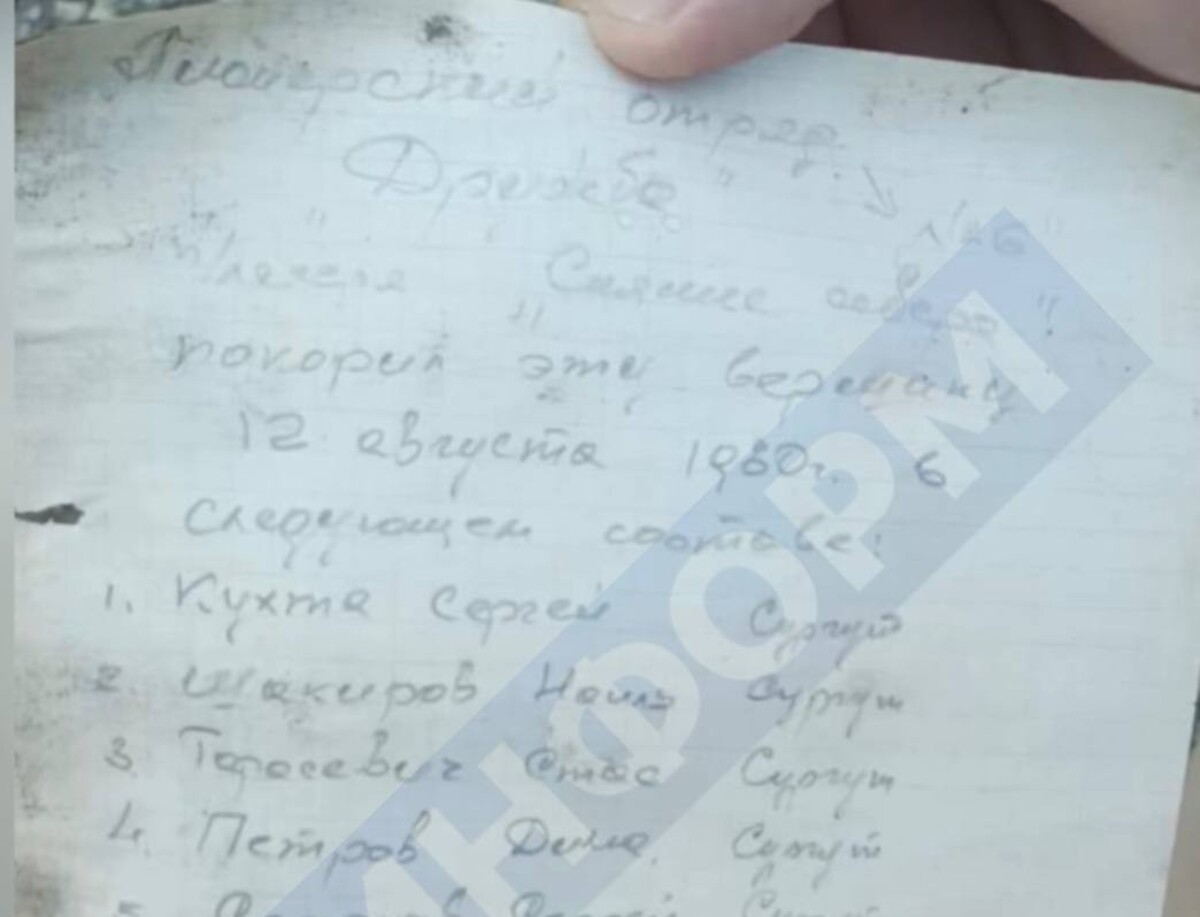 Пионерский отряд
"Дружба"
лагеря "Сияние севера"
покорил эту вершину
12 августа 1980г. в
следующем составе:
1. Кухта Сергей Сургут
2. Шакиров Наиль Сургут
3. Тарасевич Стас Сургут
4. Петров Дима Сургут
5.
ИНФОРМ